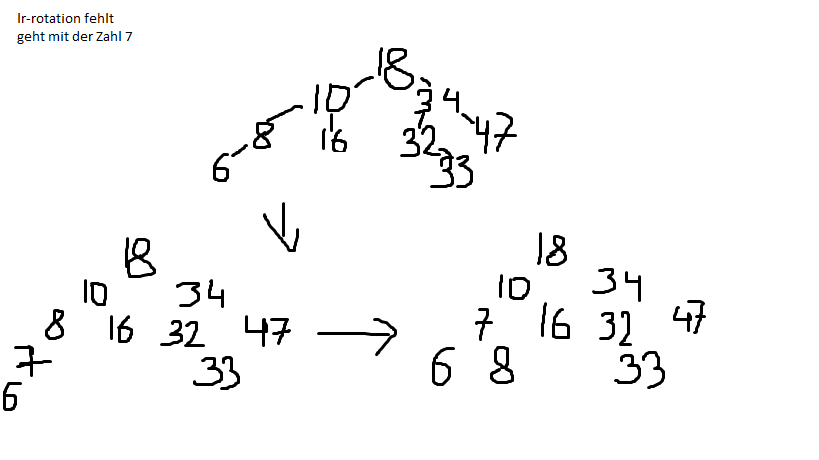 lr-rotation fehlt
geht mit der Zahl 7
18
10 34
8 16 32 47
6 33
18
10 34
8 16 32 47
7 33
6
18
10 34
7 16 32 47
6 8 33